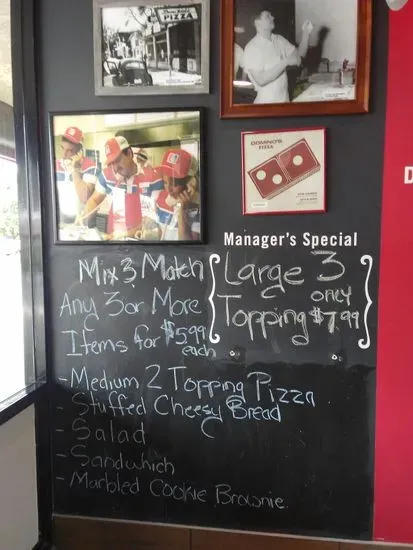 PIZZA
DOMINO'S
PIZZA
D
Manager's Special
Large 3
Topping only
$7.99
Mix 3 Match
Any 3 or More
Items for $5.99
each
- Medium 2 Topping Pizza
- Stuffed Cheesy Bread
- Salad
- Sandwhich
- Marbled Cookie Brownie